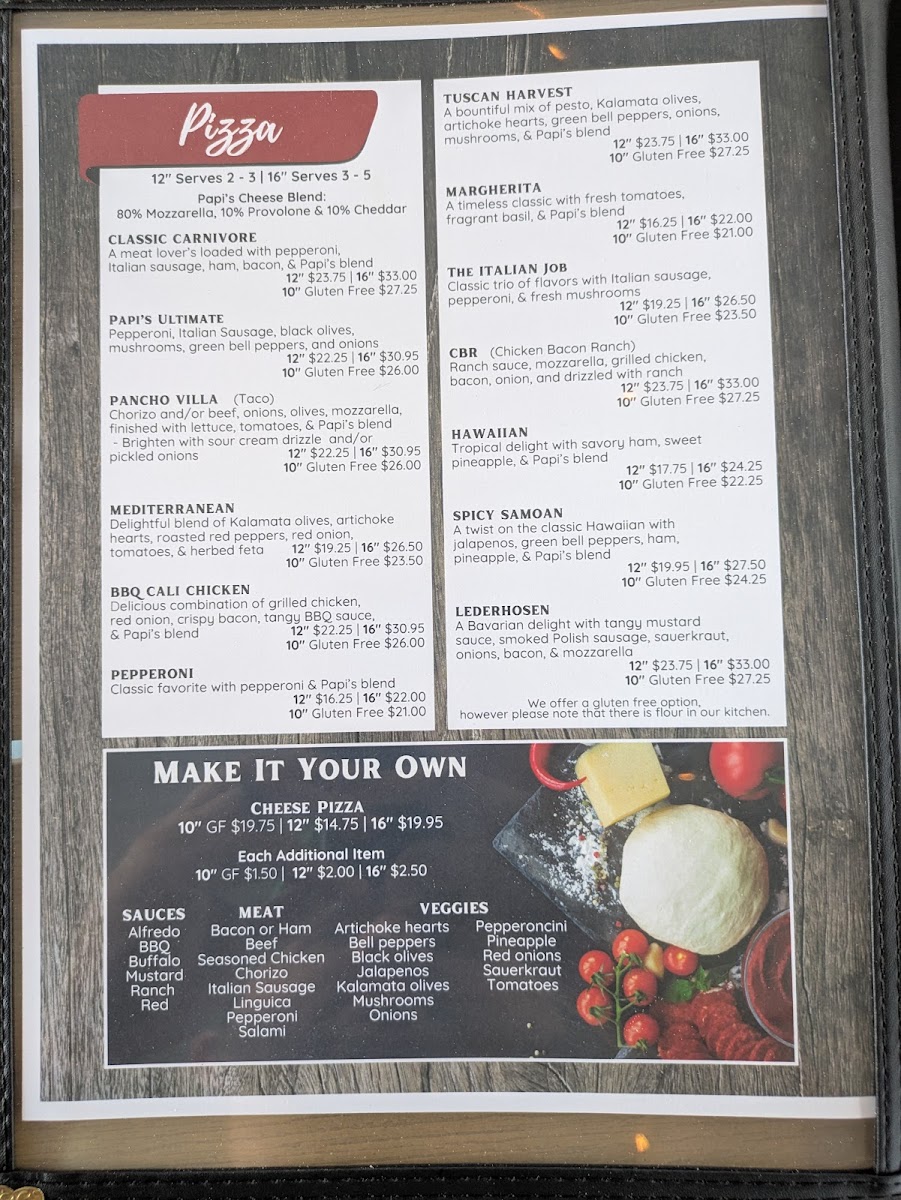 Pizza
12" Serves 2 - 3 | 16" Serves 3 - 5
Papi's Cheese Blend:
80% Mozzarella, 10% Provolone & 10% Cheddar
CLASSIC CARNIVORE
A meat lover's loaded with pepperoni,
Italian sausage, ham, bacon, & Papi's blend
12" $23.75 | 16" $33.00
10" Gluten Free $27.25
PAPI'S ULTIMATE
Pepperoni, Italian Sausage, black olives,
mushrooms, green bell peppers, and onions
12" $22.25 | 16" $30.95
10" Gluten Free $26.00
PANCHO VILLA (Taco)
Chorizo and/or beef, onions, olives, mozzarella,
finished with lettuce, tomatoes, & Papi's blend
- Brighten with sour cream drizzle and/or
pickled onions 12" $22.25 | 16" $30.95
10" Gluten Free $26.00
MEDITERRANEAN
Delightful blend of Kalamata olives, artichoke
hearts, roasted red peppers, red onion,
tomatoes, & herbed feta 12" $19.25 | 16" $26.50
10" Gluten Free $23.50
BBQ CALI CHICKEN
Delicious combination of grilled chicken,
red onion, crispy bacon, tangy BBQ sauce,
& Papi's blend 12" $22.25 | 16" $30.95
10" Gluten Free $26.00
PEPPERONI
Classic favorite with pepperoni & Papi's blend
12" $16.25 | 16" $22.00
10" Gluten Free $21.00
TUSCAN HARVEST
A bountiful mix of pesto, Kalamata olives,
artichoke hearts, green bell peppers, onions,
mushrooms, & Papi's blend
12" $23.75 | 16" $33.00
10" Gluten Free $27.25
MARGHERITA
A timeless classic with fresh tomatoes,
fragrant basil, & Papi's blend
12" $16.25 | 16" $22.00
10" Gluten Free $21.00
THE ITALIAN JOB
Classic trio of flavors with Italian sausage,
pepperoni, & fresh mushrooms
12" $19.25 | 16" $26.50
10" Gluten Free $23.50
CBR (Chicken Bacon Ranch)
Ranch sauce, mozzarella, grilled chicken,
bacon, onion, and drizzled with ranch
12" $23.75 | 16" $33.00
10" Gluten Free $27.25
HAWAIIAN
Tropical delight with savory ham, sweet
pineapple, & Papi's blend
12" $17.75 | 16" $24.25
10" Gluten Free $22.25
SPICY SAMOAN
A twist on the classic Hawaiian with
jalapenos, green bell peppers, ham,
pineapple, & Papi's blend
12" $19.95 | 16" $27.50
10" Gluten Free $24.25
LEDERHOSEN
A Bavarian delight with tangy mustard
sauce, smoked Polish sausage, sauerkraut,
onions, bacon, & mozzarella
12" $23.75 | 16" $33.00
10" Gluten Free $27.25
We offer a gluten free option,
however please note that there is flour in our kitchen.
MAKE IT YOUR OWN
CHEESE PIZZA
10" GF $19.75 | 12" $14.75 | 16" $19.95
Each Additional Item
10" GF $1.50 | 12" $2.00 | 16" $2.50
SAUCES
Alfredo
BBQ
Buffalo
Mustard
Ranch
Red
MEAT
Bacon or Ham
Beef
Seasoned Chicken
Chorizo
Italian Sausage
Linguica
Pepperoni
Salami
VEGGIES
Artichoke hearts
Bell peppers
Black olives
Jalapenos
Kalamata olives
Mushrooms
Onions
Pepperoncini
Pineapple
Red onions
Sauerkraut
Tomatoes